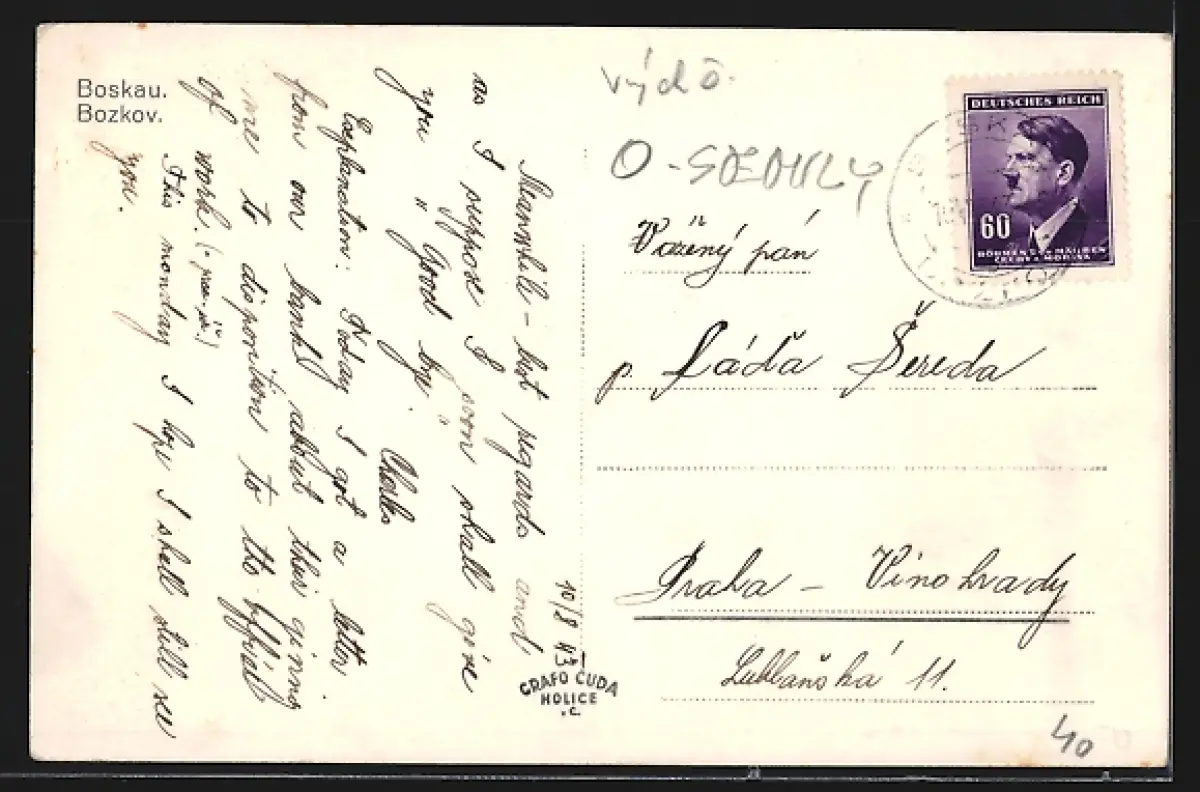 Boskau.
Bozkov.
Meanwhile - best regards and
as I suppose I soon shall give
you "Good bye."
Charles
Explanation: Today I got a letter
from our bank about their giving
me to disposition to the official
of work. (
This monday I hope I shell still see
you.
10/8 43
GRAFO ČUDA
HOLICE
.C.
O-SEDMLY
Vážený pán
p. Láďa Šereda
Praha - Vinohrady
Lublaňská 11.
40
DEUTSCHES REICH
60
BÖHMEN U. MÄHREN
ČECHY A MORAVA